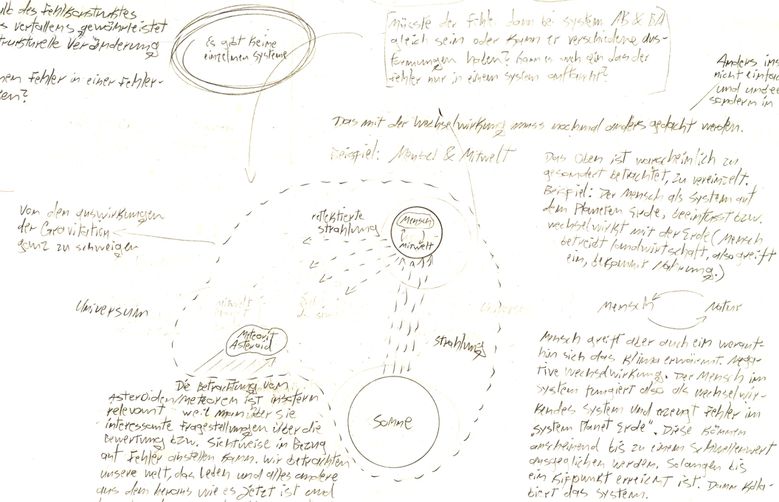 des Fehlkonstruktes
verfallens gewährleistet
strukturelle Veränderung
Fehler in einer Fehler-
Es gibt keine
einzelnen Systeme
Müsste der Fehler dann bei System AB & BA
gleich sein oder kann er verschiedene Aus-
formungen haben? Kann es auch sein das der
Fehler nur in einem System auftaucht?
Anders
nicht
und
sondern in
Das mit der Wechselwirkung muss nochmal anders gedacht werden.
Beispiel: Mensch & Mitwelt
Das Oben ist warscheinlich zu
gesondert betrachtet, zu vereinzelt.
Beispiel: Der Mensch als System auf
dem Planeten Erde, beeinflusst bzw.
wechselwirkt mit der Erde (Mensch
betreibt Landwirtschaft, also greift
ein, bekommt Nahrung.)
Mensch
Natur
Mensch greift aber auch ein worauf
hin sich das Klima erwärmt. Nega-
tive Wechselwirkung. Der Mensch im
System fungiert also als wechselwir-
kendes System und erzeugt Fehler im
System Planet Erde". Diese können
anscheinend bis zu einem Schwellenwert
ausgeglichen werden. Solange bis
ein Kippunkt erreicht ist. Dann Kolla-
biert das System.
Von den Auswirkungen
der Gravitation
ganz zu schweigen
reflektierte
Strahlung
Mensch
Mitwelt
Universum
Meteorit
Asteroid
Strahlung
Sonne
Die Betrachtung von
Asteroiden/Meteoren ist insofern
relevant weil man über sie
interessante Fragestellungen über die
Bewertung bzw. Sichtweise in Bezug
auf Fehler anstellen kann. Wir betrachten
unsere Welt, das Leben und alles andere
aus dem heraus wie es jetzt ist und